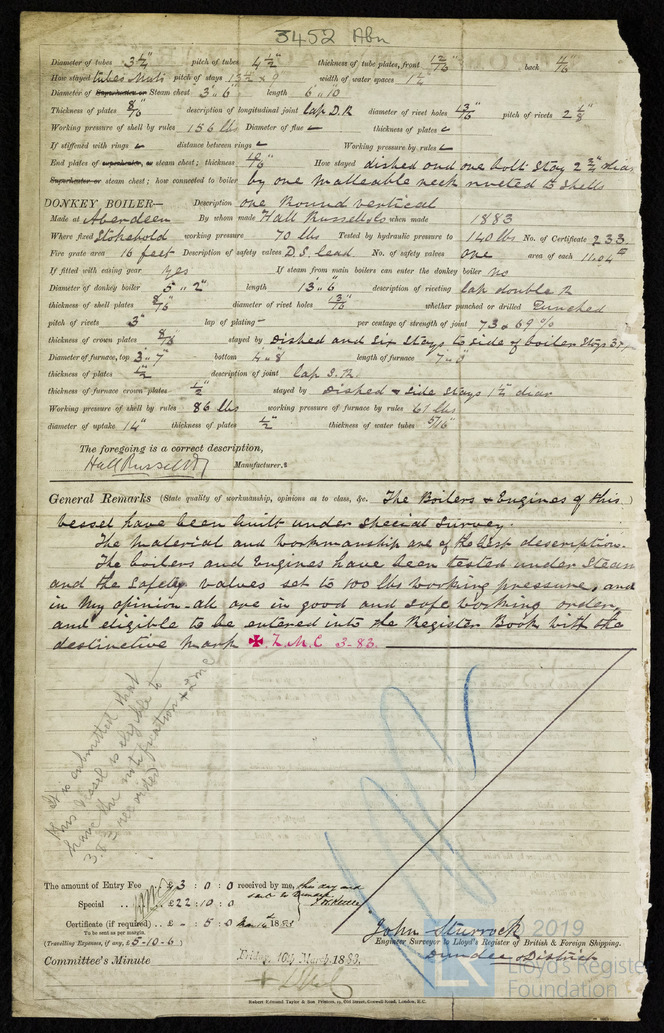 3452 Abn
Diameter of tubes 3 1/4" pitch of tubes 4 1/2" thickness of tube plates, front 12/16" back 11/16"
How stayed tubes Nuts pitch of stays 13 1/2 x 9 width of water spaces 1 1/4"
Diameter of Superheater or Steam chest 3' 6" length 6' 10
Thickness of plates 8/16" description of longitudinal joint lap D.R diameter of rivet holes 13/16" pitch of rivets 2 1/8"
Working pressure of shell by rules 156 lbs Diameter of flue thickness of plates
If stiffened with rings distance between rings Working pressure by rules
End plates of superheater, or steam chest; thickness 10/16" How stayed dished and one bolt stay 2 3/4" diar
Superheater or steam chest; how connected to boiler by one malleable neck riveted to shells
DONKEY BOILER— Description one Round vertical
Made at Aberdeen By whom made Hall Russell & Co when made 1883
Where fixed Stokehold working pressure 70 lbs Tested by hydraulic pressure to 140 lbs No. of Certificate 233
Fire grate area 16 feet Description of safety valves D.S. lead No. of safety valves one area of each 11.04
If fitted with easing gear yes If steam from main boilers can enter the donkey boiler no
Diameter of donkey boiler 5' 2" length 13' 6 description of riveting lap double R
thickness of shell plates 8/16" diameter of rivet holes 13/16" whether punched or drilled Punched
pitch of rivets 3" lap of plating – per centage of strength of joint 73 . 69 %
thickness of crown plates 8/16 stayed by Dished and six stays to side of boiler stays
Diameter of furnace, top 3' 7" bottom 4' 8 length of furnace 7' 0
thickness of plates 1/2" description of joint lap S.R.
thickness of furnace crown plates 1/2" stayed by Dished & side stays 1 1/2" diar
Working pressure of shell by rules 86 lbs working pressure of furnace by rules 61 lbs
diameter of uptake 14" thickness of plates 1/2" thickness of water tubes 5/16"
The foregoing is a correct description,
Hall Russell & Co Manufacturer.
General Remarks (State quality of workmanship, opinions as to class, &c. The Boilers & Engines of this )
vessel have been built under special survey.
The material and workmanship are of the best description.
The boilers and Engines have been tested under steam
and the safety valves set to 100 lbs working pressure, and
in my opinion all are in good and safe working order,
and eligible to be entered into the Register Book with the
destinctive mark ✠ L.M.C 3-83.
It is submitted that
this vessel is eligible to
have the notification ✠ LMC
3.83 recorded
The amount of Entry Fee .. £ 3 : 0 : 0 received by me, this day and
sent to London
Special .. £22 : 10 : 0
Certificate (if required) .. £ - : 5 : 0 Mar 16th 1883
To be sent as per margin.
(Travelling Expenses, if any, £5-10-6)
John Sturrock
Engineer Surveyor to Lloyd's Register of British & Foreign Shipping.
Dundee District
Committee's Minute Friday, 16th March, 1883.
Robert Edmund Taylor & Son Printers, 19, Old Street, Goswell Road, London, E.C.
© 2019
Lloyd's Register
Foundation
LR